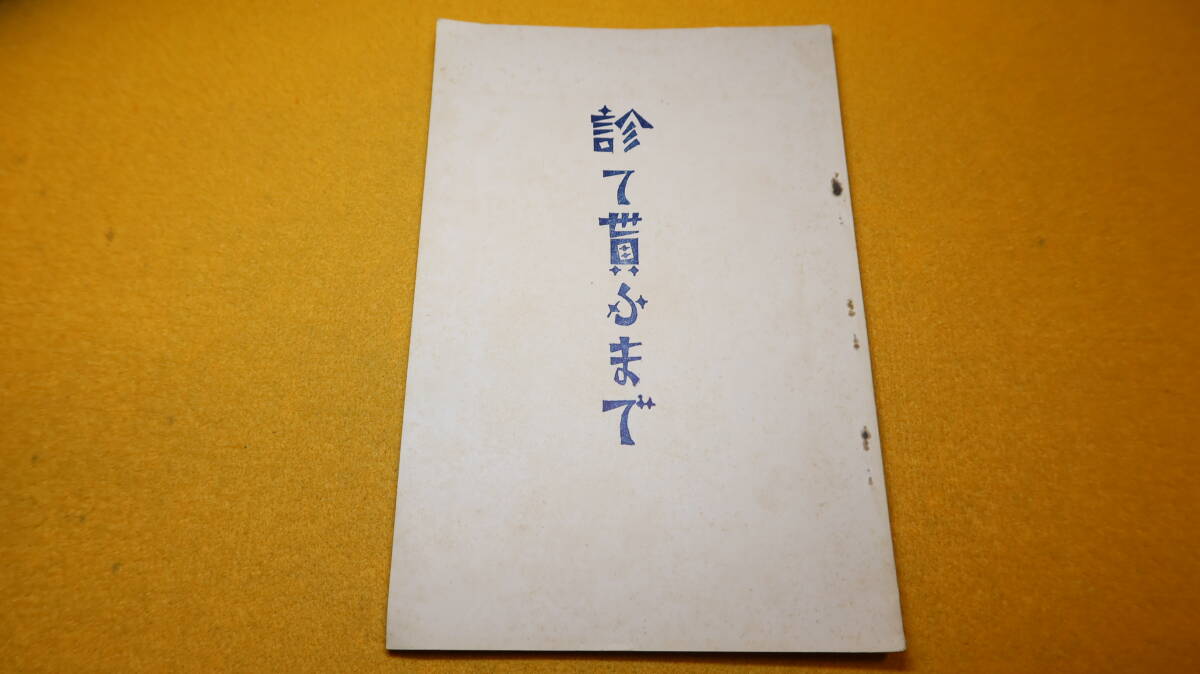 診て貰ふまで